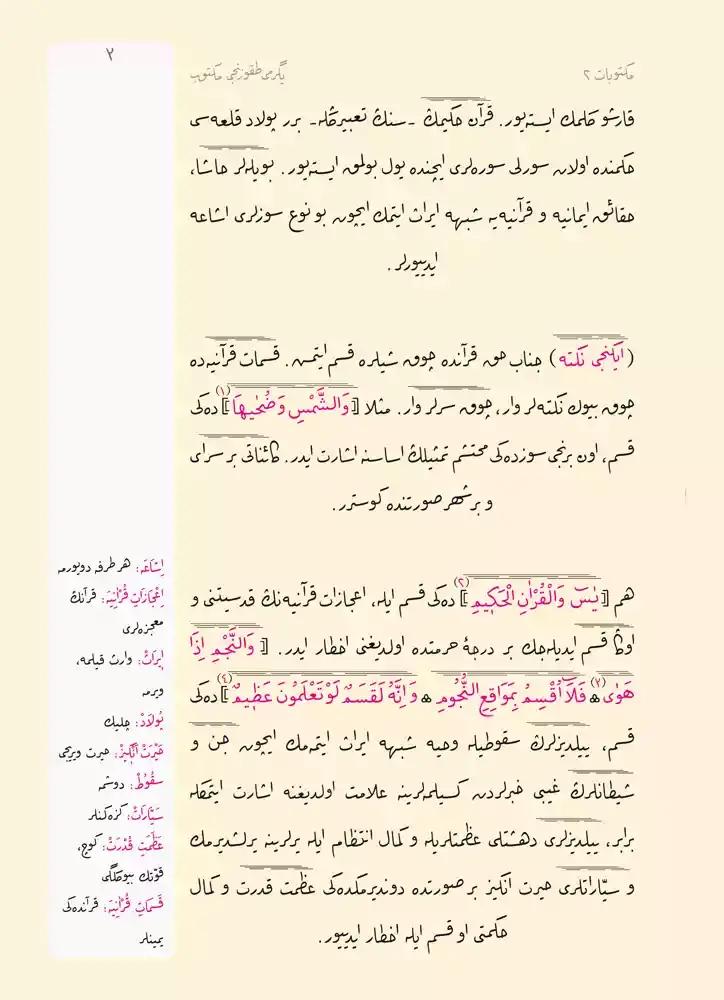 مكتوبات ٢
يگرمی طقوزنجی مكتوب
٢
قارشو گلمك ايسته‌يور. قرآن حكيمڭ -سنڭ تعبيرڭله- برر پولاد قلعه‌سی
حكمنده اولان سورلی سوره‌لری ايچنده يول بولمق ايسته‌يور. بويله‌لر حاشا،
حقائق ايمانيه و قرآنيه‌يه شبهه ايراث ايتمك ايچون بو نوع سوزلری اشاعه
ايدييورلر.
(ايكنجی نكته) جناب حق قرآنده چوق شيلره قسم ايتمش. قسمات قرآنيه‌ده
چوق بيوك نكته‌لر وار، چوق سرلر وار. مثلا [وَالشَّمْسِ وَضُحٰيهَا](١) ده‌كی
قسم، اون برنجی سوزده‌كی محتشم تمثيلڭ اساسنه اشارت ايدر. كائناتی بر سرای
و بر شهر صورتنده گوسترر.
هم [يٰسٓ وَالْقُرْاٰنِ الْحَك۪يمِ](٢) ده‌كی قسم ايله، اعجازات قرآنيه‌نڭ قدسيتنی و
اوڭا قسم ايديله‌جك بر درجۀ حرمتده اولديغنی اخطار ايدر. [وَالنَّجْمِ اِذَا
هَوٰى(٣) ❊ فَلَٓا اُقْسِمُ بِمَوَاقِعِ النُّجُومِ ❊ وَاِنَّهُ لَقَسَمٌ لَوْ تَعْلَمُونَ عَظ۪يمٌ](٤) ده‌كی
قسم، ييلديزلرڭ سقوطيله وحيه شبهه ايراث ايتمه‌مك ايچون جن و
شيطانلرڭ غيبی خبرلردن كسيلمه‌لرينه علامت اولديغنه اشارت ايتمكله
برابر، ييلديزلری دهشتلی عظمتلريله و كمال انتظام ايله يرلرينه يرلشديرمك
و سيّاراتلری حيرت انگيز بر صورتده دونديرمكده‌كی عظمت قدرت و كمال
حكمتی او قسم ايله اخطار ايدييور.
اِشَاعَه: هر طرفه دويورمه
اِعْجَازَاتِ قُرْاٰنِيَه: قرآنڭ
معجزه‌لری
ايرَاث: وارث قيلمه،
ويرمه
پُولَاد: چليك
حَيْرَتْ اَنْگيز: حيرت ويريجی
سُقُوط: دوشمه
سَيَّارَات: گزه‌گنلر
عَظَمَتِ قُدْرَت: گوج،
قوّتڭ بيوكلگی
قَسَمَاتِ قُرْاٰنِيَه: قرآنده‌كی
يمينلر